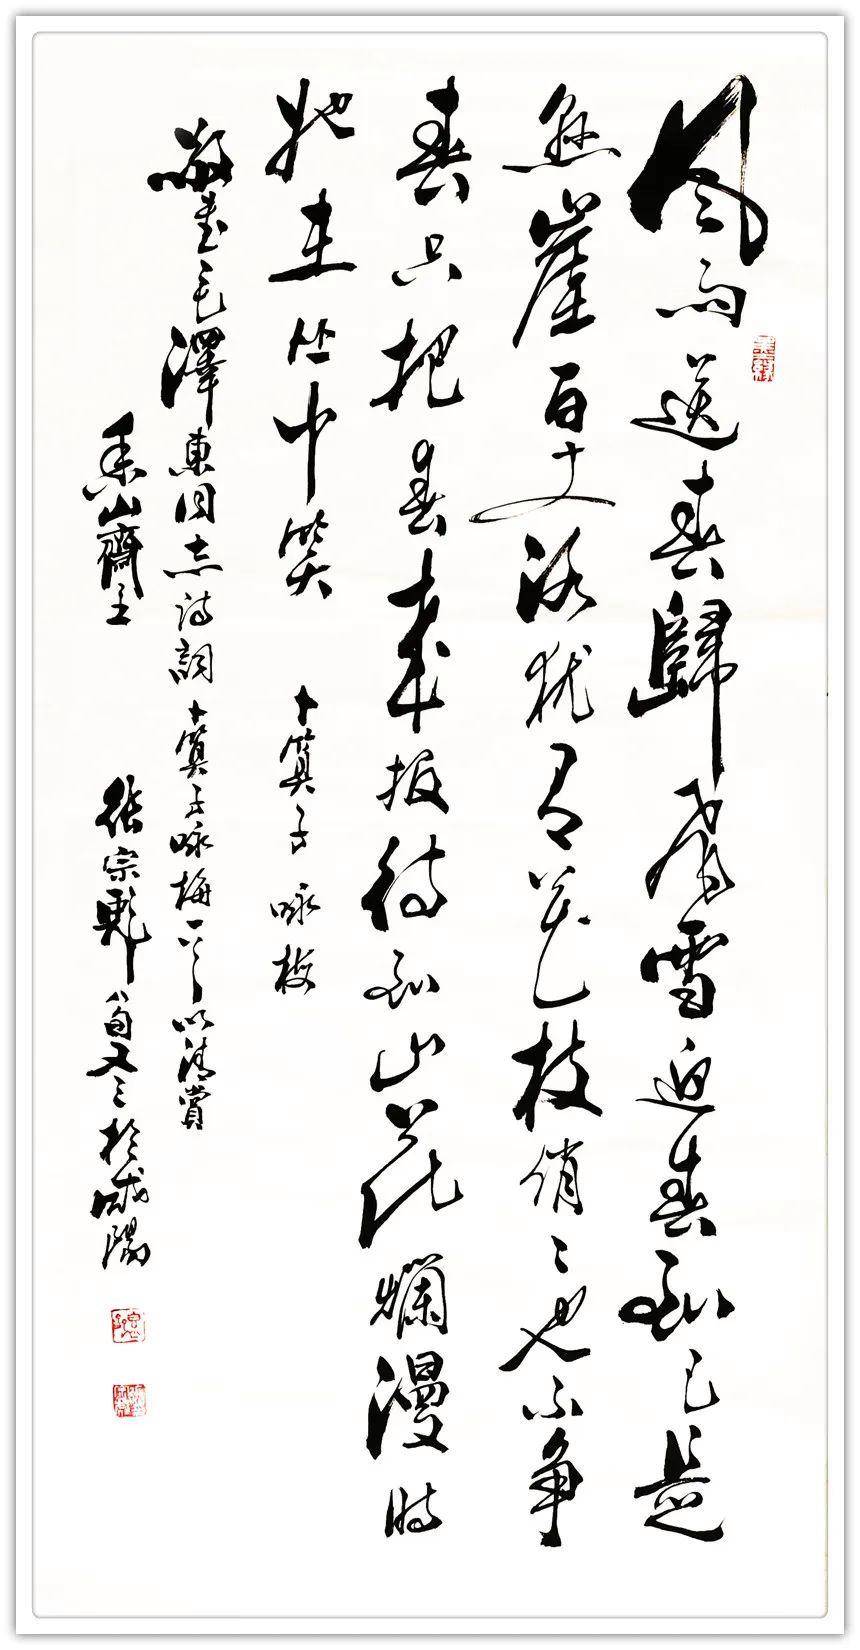 风雨送春歸飛雪迎春到已是
悬崖百丈冰犹有花枝俏〻也不争
春只把春来报待到山花爛漫时
她在丛中笑 卜算子 咏梅
敬书毛澤東同志诗詞卜算子咏梅一首以清賞
山齋主 张宗 八旬又三於咸陽